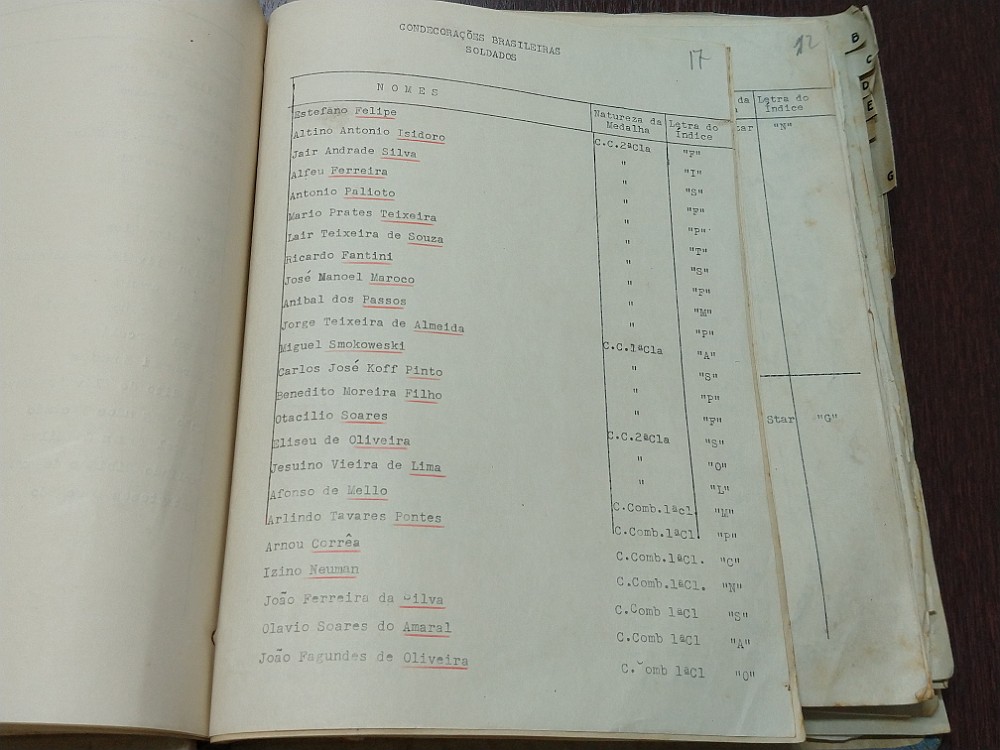 CONDECORAÇÕES BRASILEIRAS
SOLDADOS
17
12
N O M E S
Natureza da Medalha
Letra do Índice
Estefano Felipe C.C.2ªCla "F"
Altino Antonio Isidoro " "I"
Jair Andrade Silva " "S"
Alfeu Ferreira " "F"
Antonio Palioto " "P"
Mario Prates Teixeira " "T"
Lair Teixeira de Souza " "S"
Ricardo Fantini " "F"
José Manoel Maroco " "M"
Anibal dos Passos " "P"
Jorge Teixeira de Almeida C.C.1ªCla "A"
Miguel Smokoweski " "S"
Carlos José Koff Pinto " "P"
Benedito Moreira Filho " "F"
Otacilio Soares C.C.2ªCla "S"
Eliseu de Oliveira " "O"
Jesuino Vieira de Lima " "L"
Afonso de Mello C.Comb.1ªCl. "M"
Arlindo Tavares Pontes C.Comb.1ªCl. "P"
Arnou Corrêa C.Comb.1ªCl. "C"
Izino Neuman C.Comb.1ªCl. "N"
João Ferreira da Silva C.Comb 1ªCl "S"
Olavio Soares do Amaral C.Comb 1ªCl "A"
João Fagundes de Oliveira C.Comb 1ªCl "O"
da Letra do Índice
tar "N"
Star "G"
B
C
D
E
G